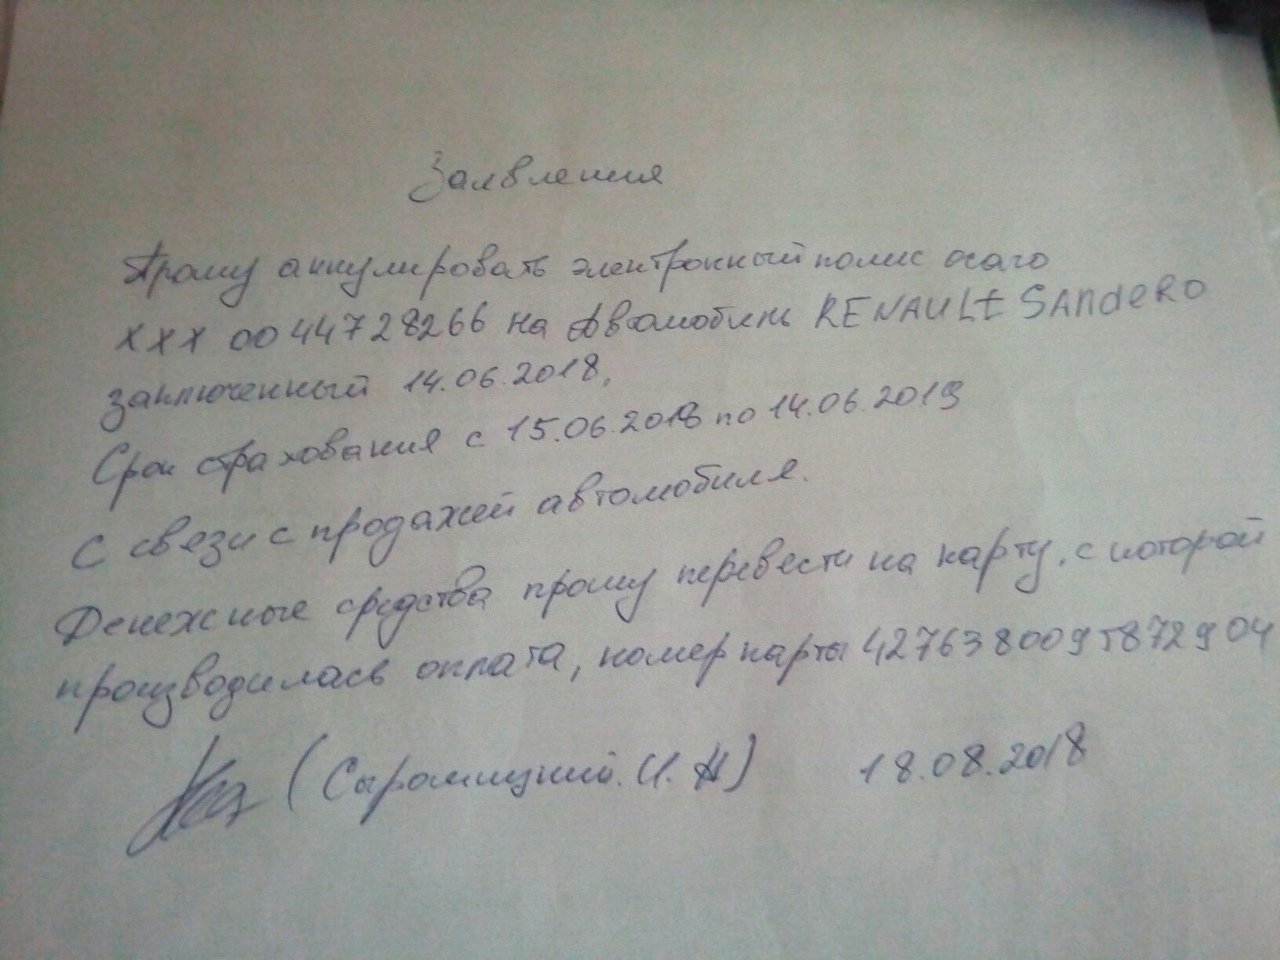 Заявления
Прошу аннулировать электронный полис осаго
ХХХ 0044728266 на Автомобиль RENAULT SANdeRO
заключенный 14.06.2018,
Срок страхования с 15.06.2018 по 14.06.2019
С связи с продажей автомобиля.
Денежные средства прошу перевести на карту, с которой
производилась оплата, номер карты 4276380095872904
(И. Н) 18.08.2018